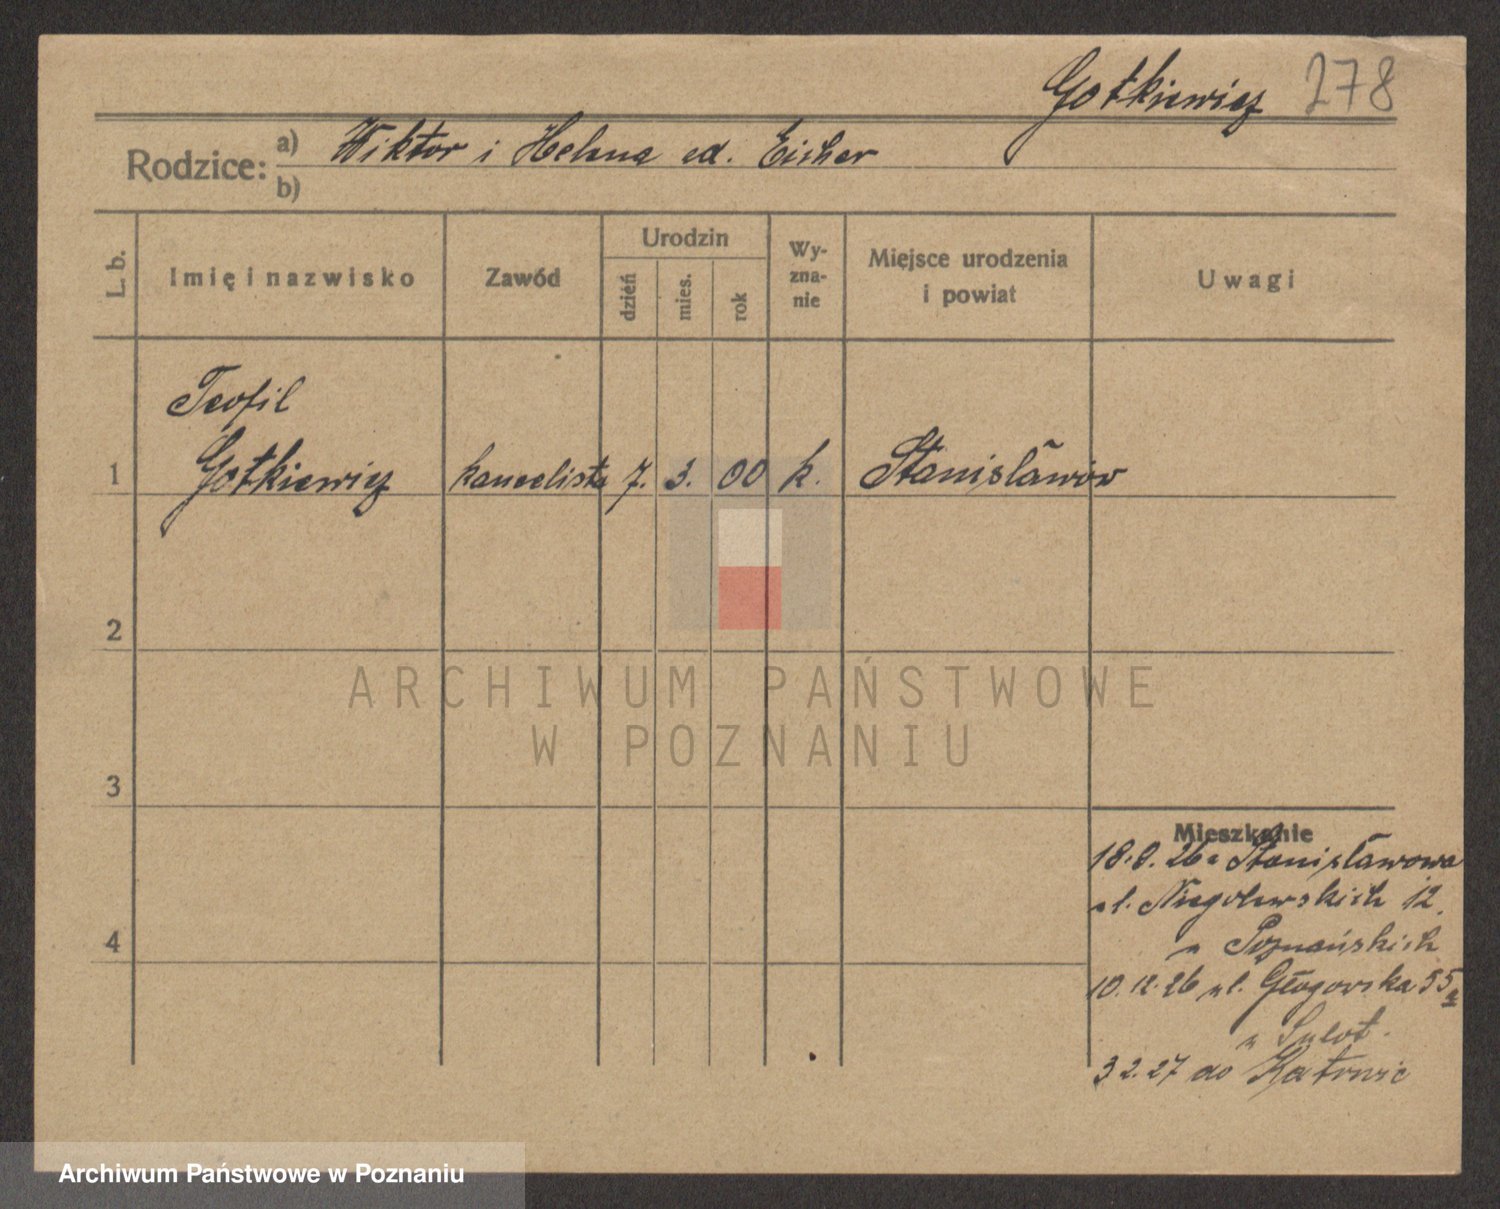 Gotkiewicz 278
Rodzice: a) Wiktor i Helena zd. Eicher
b)
L. b. Imię i nazwisko Zawód Urodzin dzień mies. rok Wy-zna-nie Miejsce urodzenia i powiat Uwagi
Teofil
1 Gotkiewicz kancelista 7. 3. 00 k. Stanisławów
2
ARCHIWUM PAŃSTWOWE
W POZNANIU
3
Mieszkanie
18.8.26 z Stanisławowa
ul. Niegolewskich 12
4
u Poznańskich
10.12.26 ul. Głogowska 55
u
3 2.27 do Katowic
Archiwum Państwowe w Poznaniu